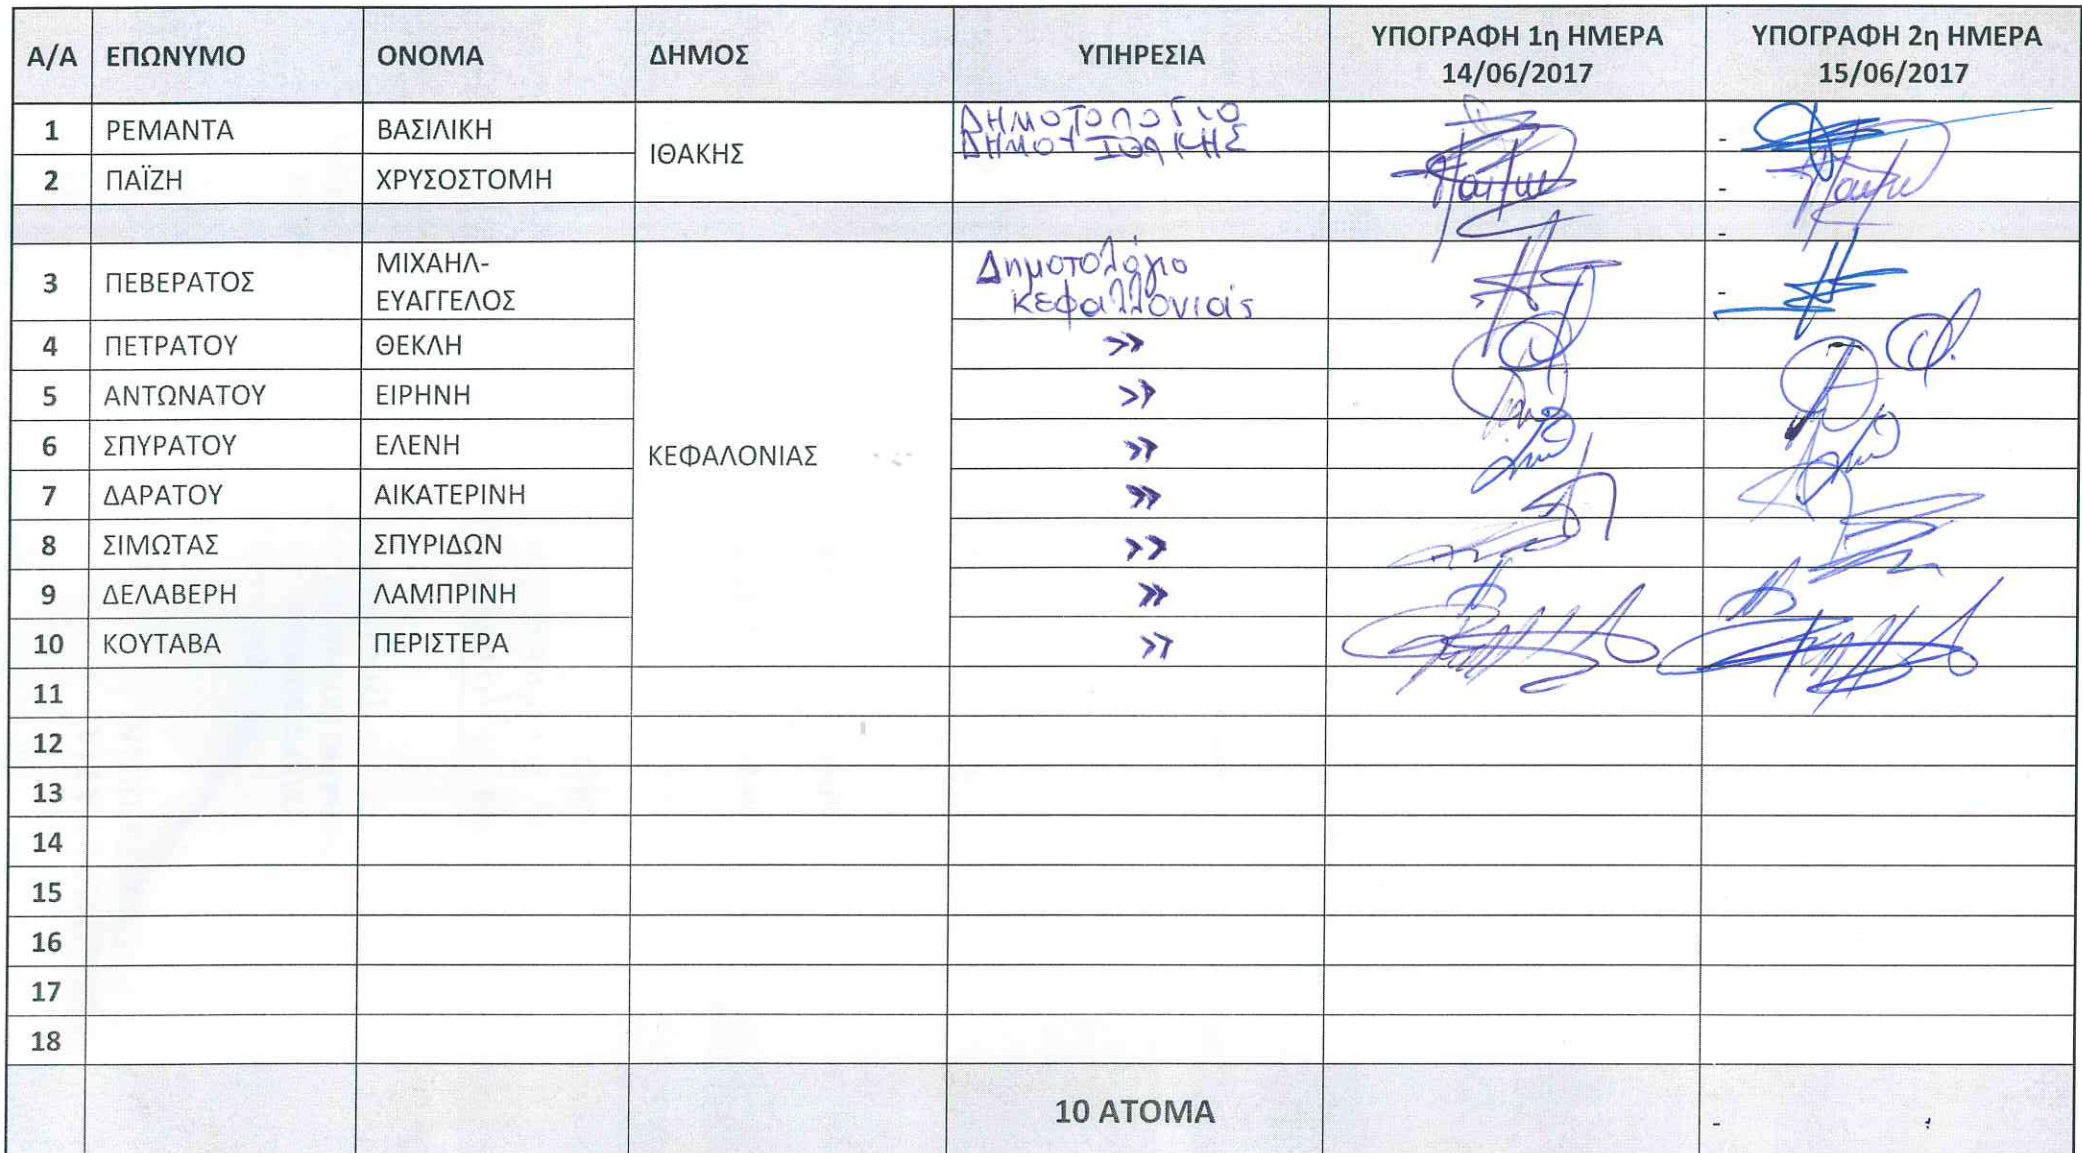 Α/Α ΕΠΩΝΥΜΟ ΟΝΟΜΑ ΔΗΜΟΣ ΥΠΗΡΕΣΙΑ ΥΠΟΓΡΑΦΗ 1η ΗΜΕΡΑ 14/06/2017 ΥΠΟΓΡΑΦΗ 2η ΗΜΕΡΑ 15/06/2017
1 ΡΕΜΑΝΤΑ ΒΑΣΙΛΙΚΗ ΙΘΑΚΗΣ ΔΗΜΟΤΟΛΟΓΙΟ ΔΗΜΟΥ ΙΘΑΚΗΣ -
2 ΠΑΪΖΗ ΧΡΥΣΟΣΤΟΜΗ -
-
3 ΠΕΒΕΡΑΤΟΣ ΜΙΧΑΗΛ-ΕΥΑΓΓΕΛΟΣ ΚΕΦΑΛΟΝΙΑΣ Δημοτολόγιο κεφαλλονιάς -
4 ΠΕΤΡΑΤΟΥ ΘΕΚΛΗ >>
5 ΑΝΤΩΝΑΤΟΥ ΕΙΡΗΝΗ >>
6 ΣΠΥΡΑΤΟΥ ΕΛΕΝΗ >>
7 ΔΑΡΑΤΟΥ ΑΙΚΑΤΕΡΙΝΗ >>
8 ΣΙΜΩΤΑΣ ΣΠΥΡΙΔΩΝ >>
9 ΔΕΛΑΒΕΡΗ ΛΑΜΠΡΙΝΗ >>
10 ΚΟΥΤΑΒΑ ΠΕΡΙΣΤΕΡΑ >>
11
12
13
14
15
16
17
18
10 ΑΤΟΜΑ -